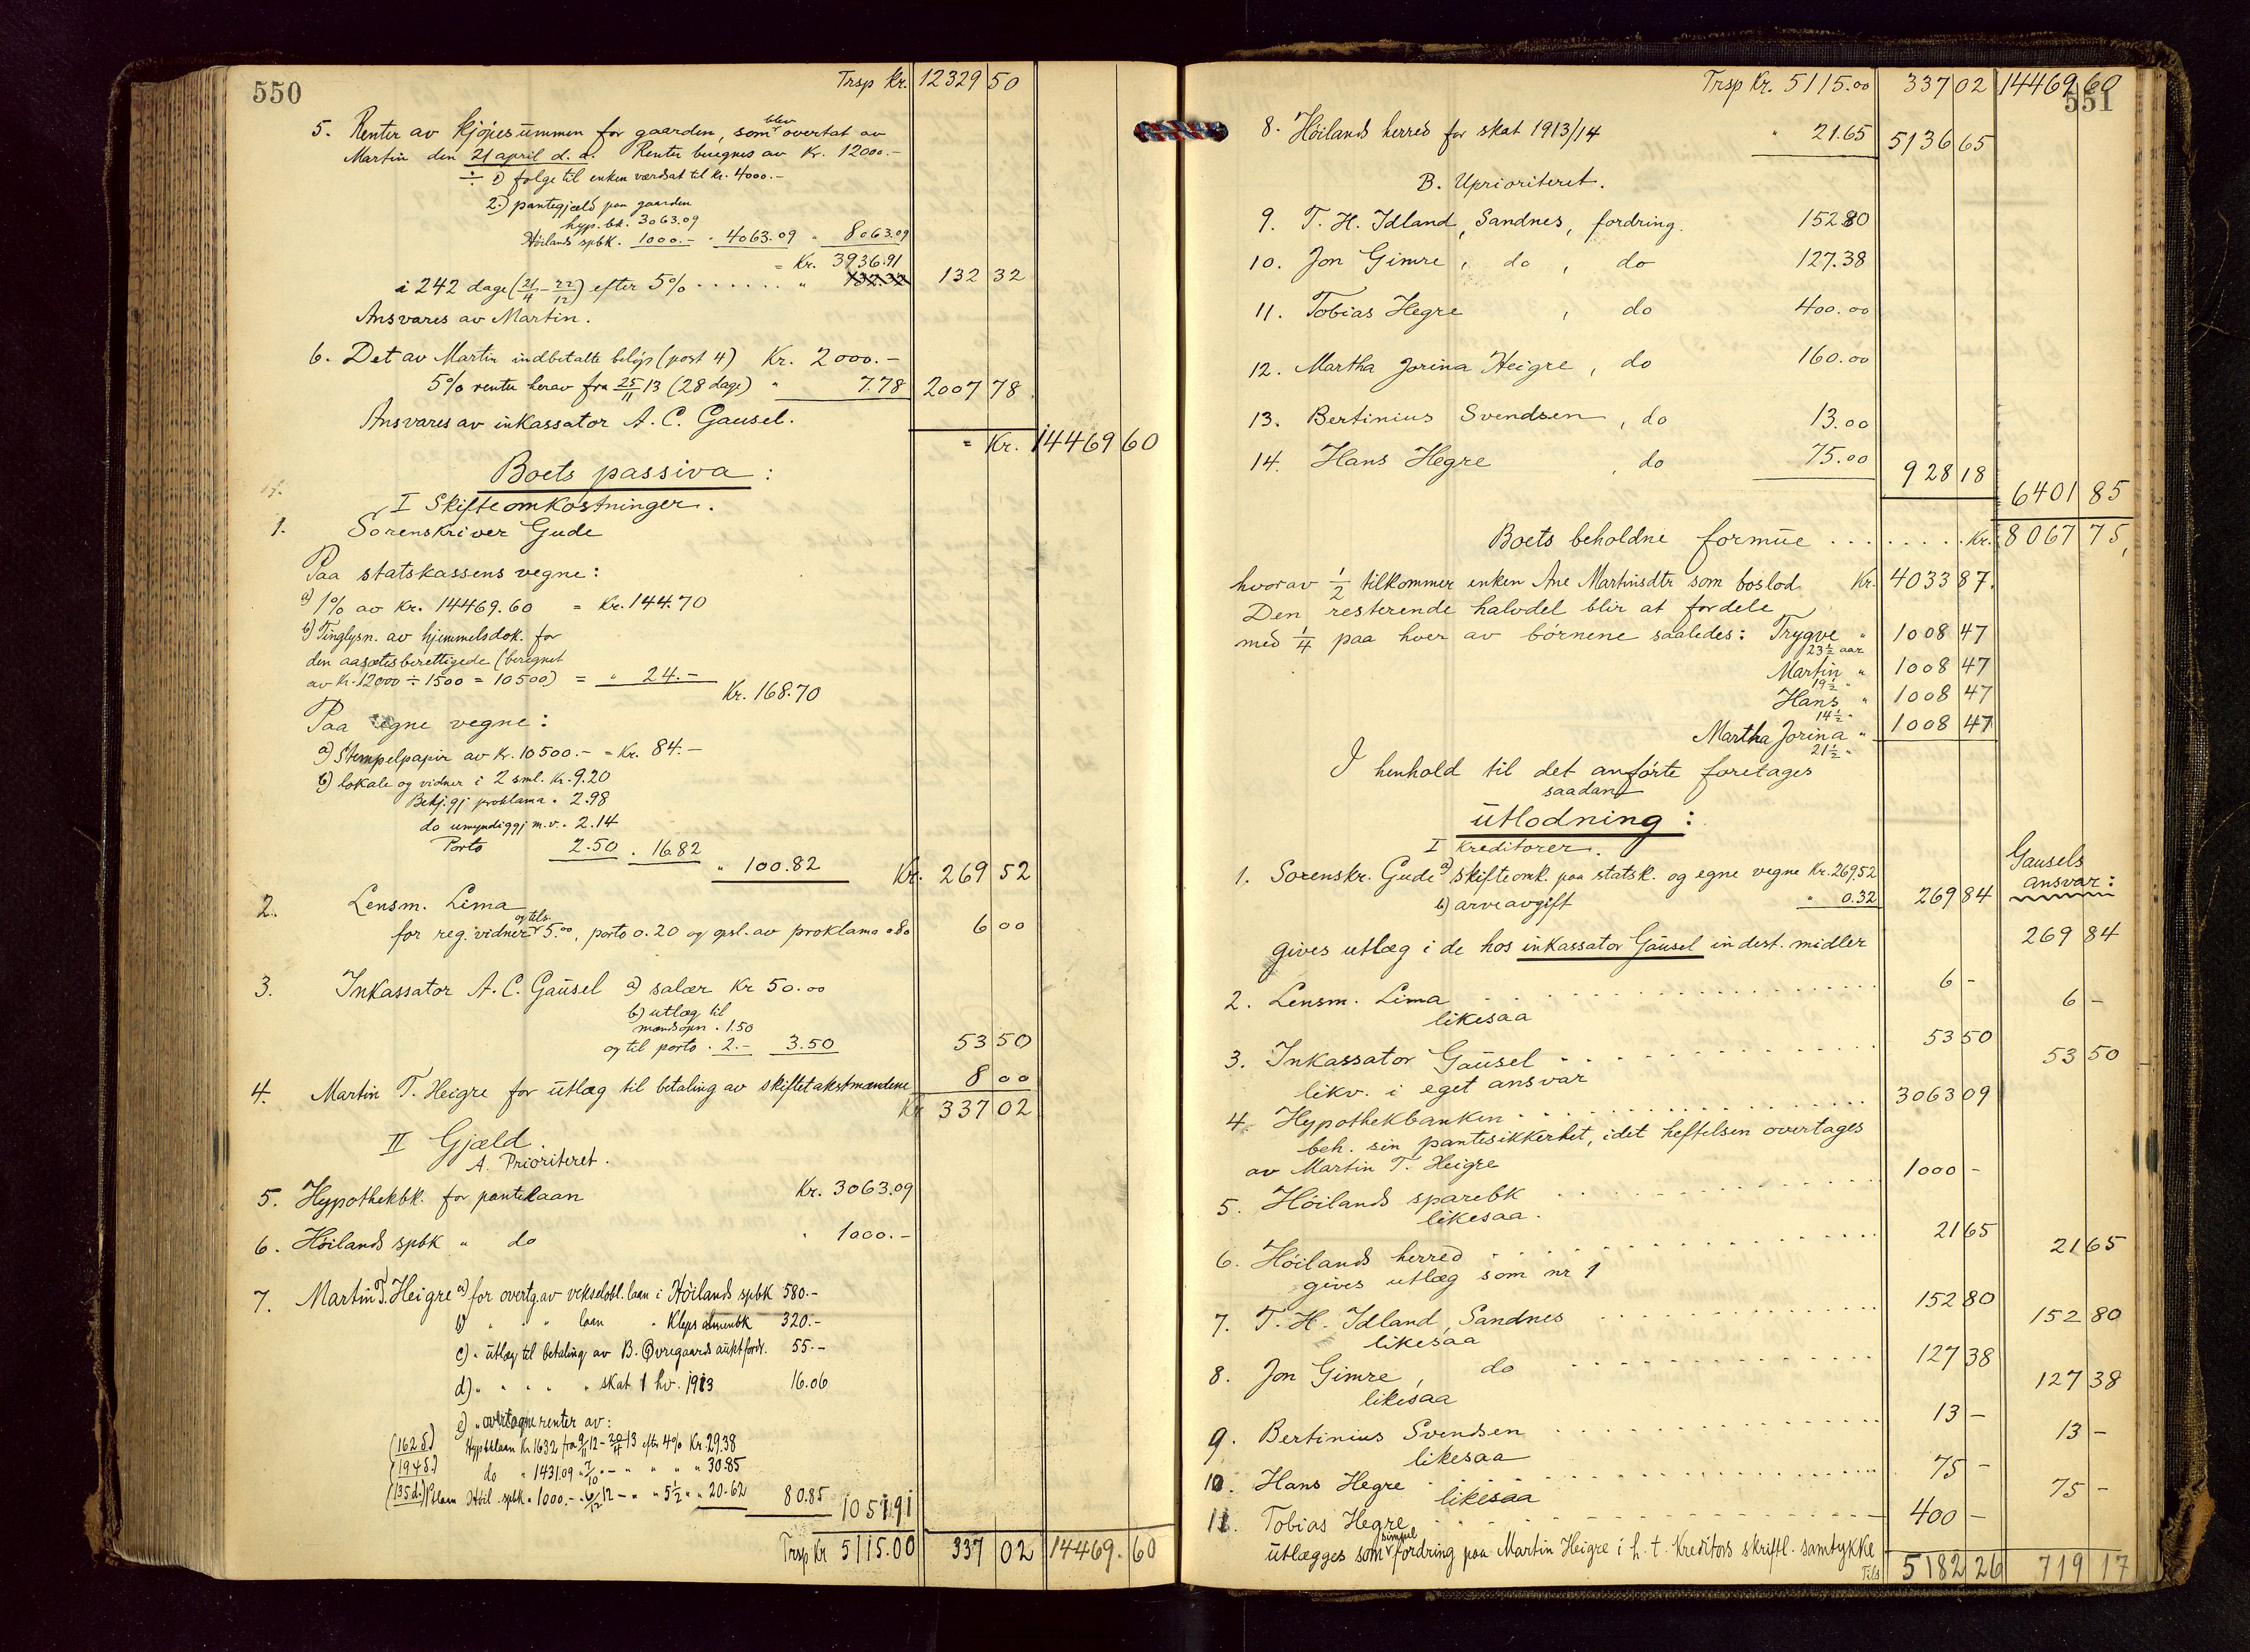 550
Trsp Kr. 12329 50
5. Renter av kjøpesummen for gaarden, som blev overtat av
Martin den 21 april d. a. Renter beregnes av Kr. 12000.-
÷ 1) følge til enken værdsat til kr. 4000.-
2.) pantegjæld paa gaarden
hyp. bk. 3063.09
Høilands spbk. 1000.- " 4063.09 " 8063.09
= Kr. 3936.91
i 242 dage (21/4 - 22/12) efter 5% . . . . . . " 132.32 132 32
Ansvares av Martin.
6. Det av Martin indbetalte beløp (post 4) Kr. 2000.-
5% renter herav fra 25/11 13 (28 dage) " 7.78 2007 78
Ansvares av inkassator A. C. Gausel.
= Kr. 14469 60
Boets passiva :
I Skifteomkostninger.
1. Sorenskriver Gude
Paa statskassens vegne:
a) 1% av Kr. 14469.60 = Kr. 144.70
b) Tinglysn. av hjemmelsdok. for
den aasætesberettigede (beregnet
av Kr. 12000 ÷ 1500 = 10500) = " 24.-
Kr. 168.70
Paa egne vegne:
a) Stempelpapir av Kr. 10500.- = Kr. 84.-
b) lokale og vidner i 2 sml. Kr. 9.20
Bekj.gj proklama " 2.98
do umyndiggj m.v. " 2.14
Porto 2.50 " 16.82
" 100.82 Kr. 269 52
2. Lensm. Lima
for reg. vidner og tils. 5.00, porto 0.20 og opsl. av proklama 0.80 6 00
3. Inkassator A. C. Gausel a) salær Kr 50.00
b) utlæg til
mandsopn. 1.50
og til porto . 2.- 3.50 53 50
4. Martin T. Heigre for utlæg til betaling av skiftetakstmændene 8 00
Kr 337 02
II Gjæld.
A. Prioriteret.
5. Hypothekbk. for pantelaan Kr. 3063.09
6. Høilands spbk " do " 1000.-
7. Martin T. Heigre a) for overtg. av vekselobl. laan i Høilands spbk 580.-
b) " " " laan " Kleps almenbk 320.-
c) " utlæg til betaling av B. Øvregaards auktfordr. 55.-
d) " " " " " skat 1 hv. 1913 16.06
e) " overtagne renter av:
(162 d.) Hypbklaan Kr. 1632 fra 9/11 12 - 20/4 13 efter 4% Kr. 29.38
(194 d.) do " 1431.09 " 7/10 " - " " " " 30.85
(135 d.) Pklaan Høil. spbk " 1000.- " 6/12 12 - " " 5 1/2 " " 20.62 80.85 1051.91
Trsp Kr 5115.00 337 02 14469. 60
551
Trsp Kr. 5115.00 337 02 14469 60
8. Høilands herred for skat 1913/14 " 21.65 5136 65
B. Uprioriteret.
9. T. H. Idland, Sandnes, fordring. 152.80
10. Jon Gimre, do , do 127.38
11. Tobias Hegre , do 400.00
12. Martha Jorina Heigre, do 160.00
13. Bertinius Svendsen, do 13.00
14. Hans Hegre , do 75.00 928 18
6401 85
Boets beholdne formue . . . . . . . Kr. 8067 75,
hvorav 1/2 tilkommer enken Ane Martinsdtr som boslod Kr. 4033 87.
Den resterende halvdel blir at fordele
med 1/4 paa hver av børnene saaledes: Trygve " 1008 47
23 1/2 aar
Martin " 1008 47
19 1/2 "
Hans " 1008 47
14 1/2 "
Martha Jorina " 1008 47
21 1/2 "
I henhold til det anførte foretages
saadan
utlodning :
I Kreditorer.
Gausels
ansvar:
1. Sorenskr. Gude a) skifteomk. paa statsk. og egne vegne Kr. 269.52
b) arveavgift " 0.32 269 84
gives utlæg i de hos inkassator Gausel indest. midler 269 84
2. Lensm. Lima . . . . . . . . . 6 -
likesaa 6 -
3. Inkassator Gausel . . . . . . . . 53 50
likv. i eget ansvar 53 50
4. Hypothekbanken . . . . . . . . . 3063 09
beh. sin pantesikkerhet, idet heftelsen overtages
av Martin T. Heigre
5. Høilands sparebk . . . . . . . . 1000 -
likesaa.
6. Høilands herred . . . . . . . . 21 65
gives utlæg som nr 1 21 65
7. T. H. Idland, Sandnes . . . . . . . 152 80
likesaa 152 80
8. Jon Gimre, do . . . . . . . 127 38
likesaa 127 38
9. Bertinius Svendsen . . . . . . . . 13 -
likesaa 13 -
10. Hans Hegre . . . . . . . . . 75 -
likesaa 75 -
11. Tobias Hegre . . . . . . . . . 400 -
utlægges som simpel fordring paa Martin Heigre i h. t. kreditors skriftl. samtykke
Tils 5182 26 719 17